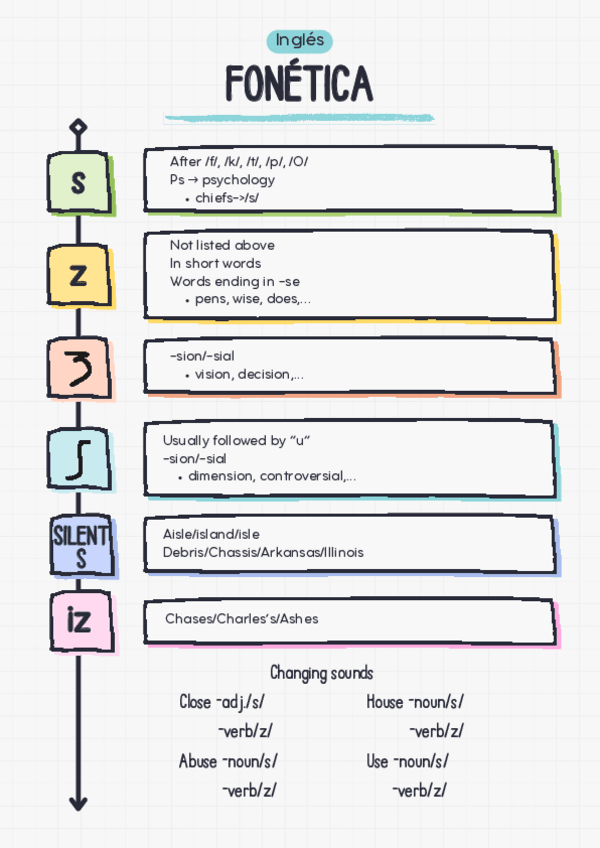 Inglés
FONÉTICA
s
After /f/, /k/, /t/, /p/, /O/
Ps → psychology
• chiefs->/s/
z
Not listed above
In short words
Words ending in -se
• pens, wise, does,...
ʒ
-sion/-sial
• vision, decision,...
ʃ
Usually followed by "u"
-sion/-sial
• dimension, controversial,...
SILENT
S
Aisle/island/isle
Debris/Chassis/Arkansas/Illinois
iz
Chases/Charles's/Ashes
Changing sounds
Close -adj./s/
-verb/z/
Abuse -noun/s/
-verb/z/
House -noun/s/
-verb/z/
Use -noun/s/
-verb/z/